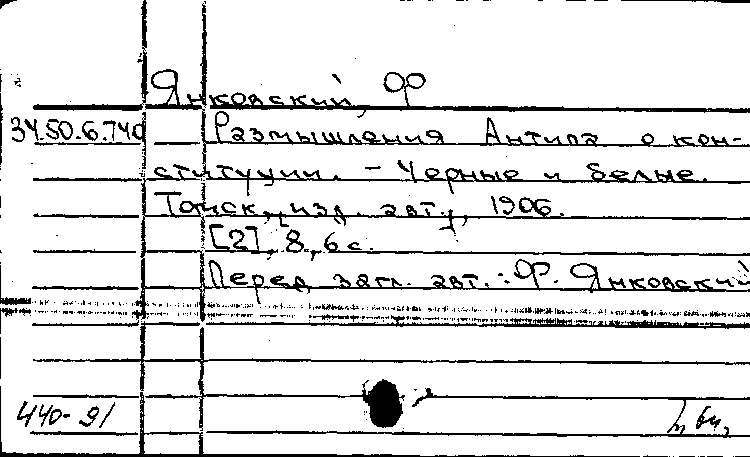 Янковский, Ф
34.50.6.740 Размышления Антипа о кон-
ституции. - Черные и белые.
Томск, [изд. авт.], 1906.
[2], 8, 6 с.
Перед загл. авт.: Ф. Янковский
440-91